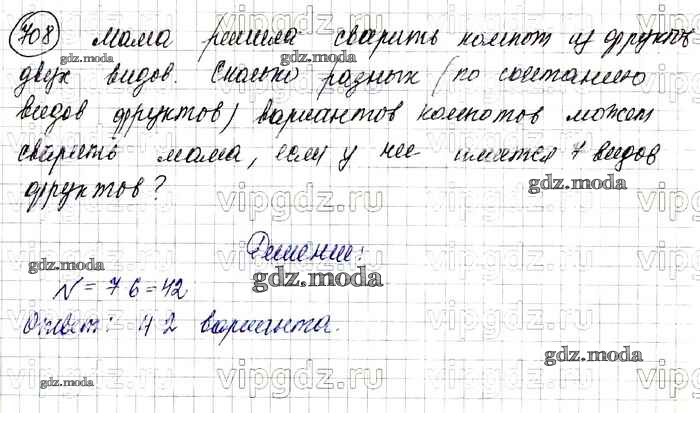 708 Мама решила сварить компот из фруктов
двух видов. Сколько разных (по сочетанию
видов фруктов) вариантов компотов может
сварить мама, если у нее имеется 7 видов
фруктов?
Решение:
N = 7 6 = 42
Ответ: 42 варианта.
vipgdz.ru
gdz.moda